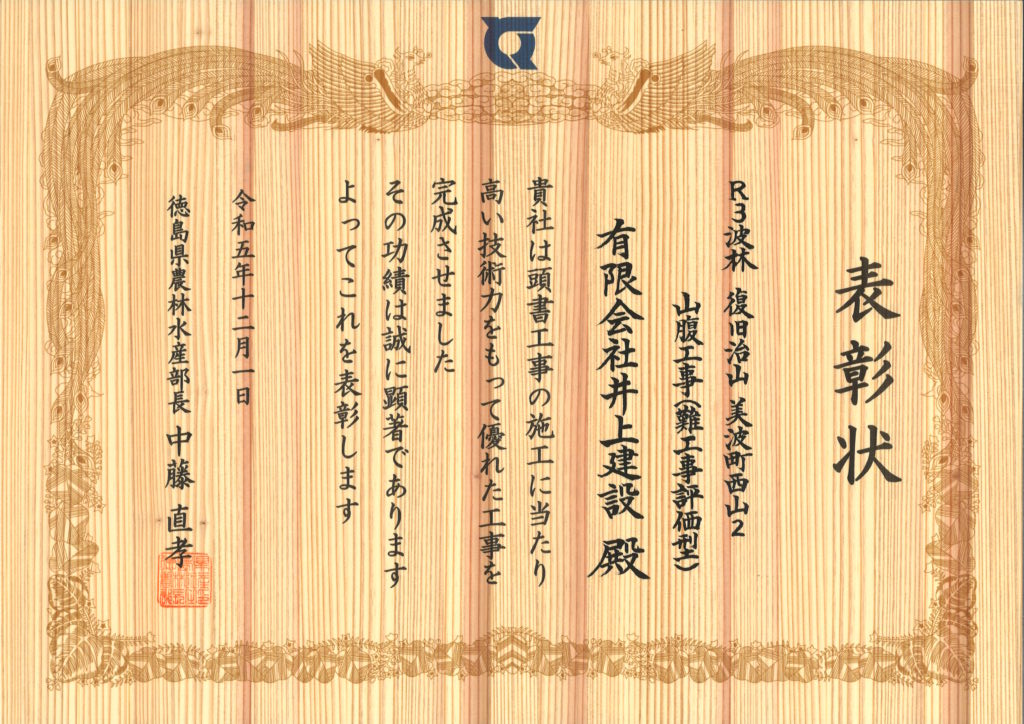 表彰状
R3波林 復旧治山 美波町西山2
山腹工事(難工事評価型)
有限会社井上建設 殿
貴社は頭書工事の施工に当たり
高い技術力をもって優れた工事を
完成させました
その功績は誠に顕著であります
よってこれを表彰します
令和五年十二月一日
徳島県農林水産部長 中藤 直孝